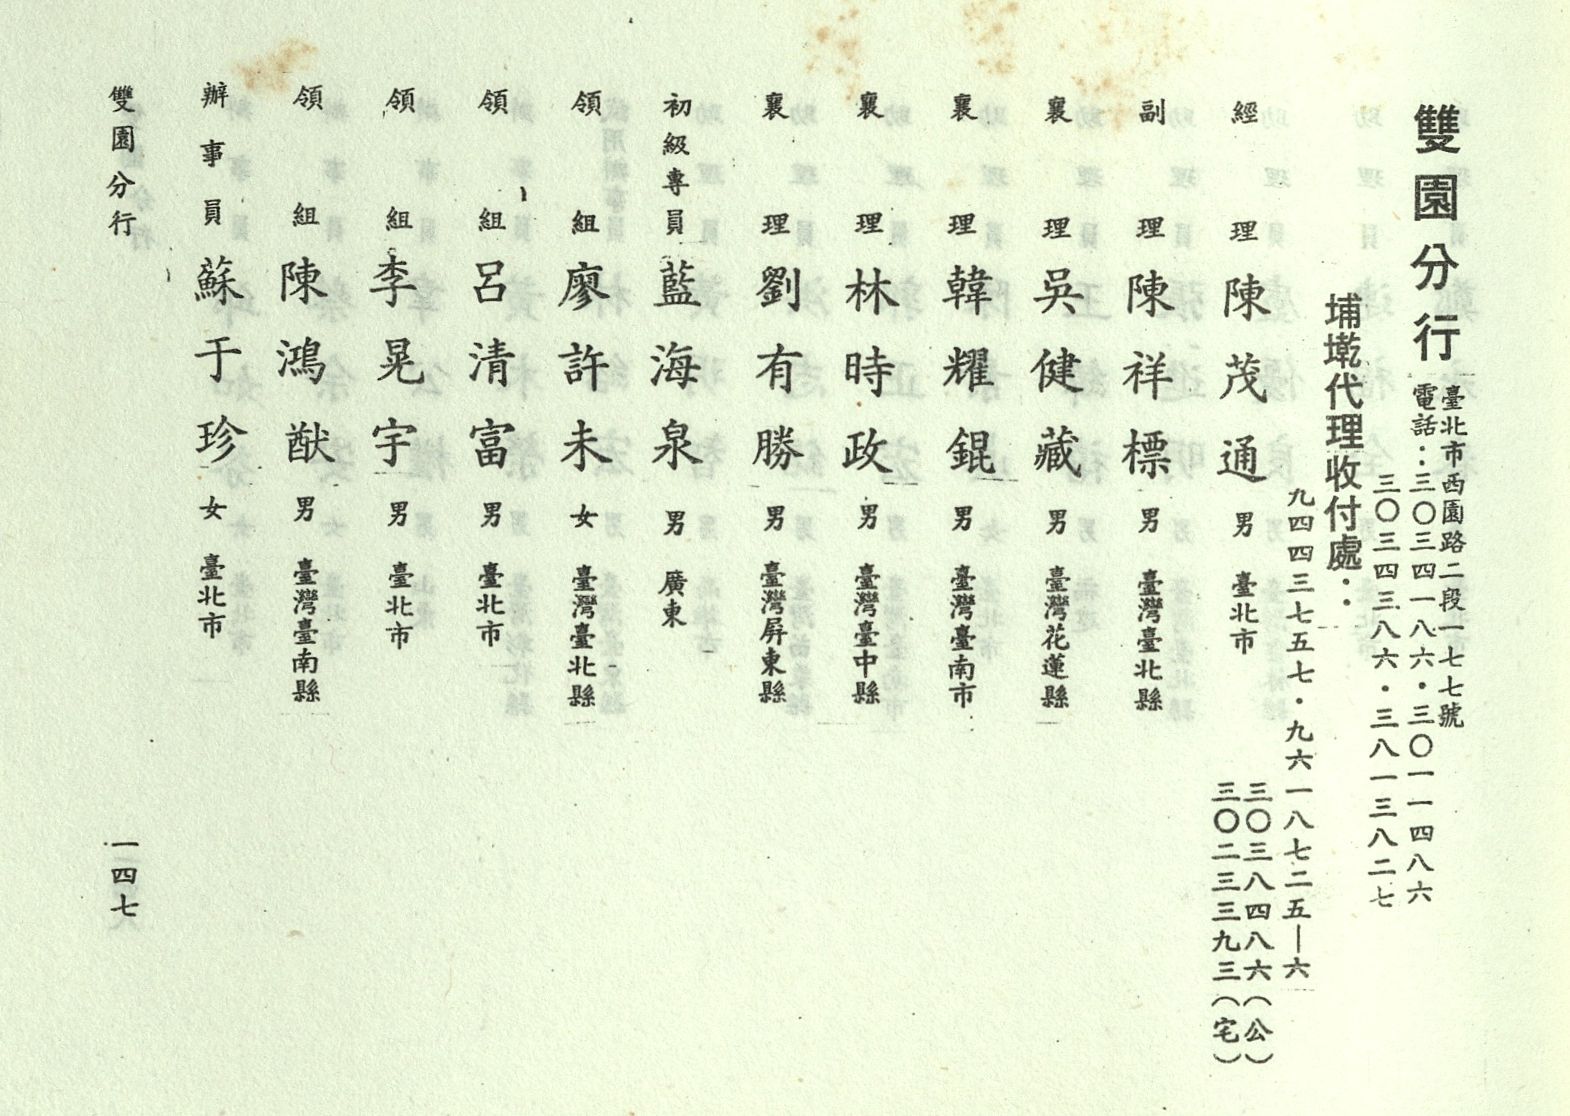 雙園分行
臺北市西園路二段一七七號
電話：三〇三四一八六・三〇一一四八六
三〇三四三八六・三八一三八二七
埔墘代理收付處：
九四四三七五七・九六一八七二五—六
經理 陳茂通 男 臺北市 三〇三八四八六（公）
三〇二三三九三（宅）
副理 陳祥標 男 臺灣臺北縣
襄理 吳健藏 男 臺灣花蓮縣
襄理 韓耀錕 男 臺灣臺南市
襄理 林時政 男 臺灣臺中縣
襄理 劉有勝 男 臺灣屏東縣
初級專員 藍海泉 男 廣東
領組 廖許未 女 臺灣臺北縣
領組 呂清富 男 臺北市
領組 李晃宇 男 臺北市
領組 陳鴻猷 男 臺灣臺南縣
辦事員 蘇于珍 女 臺北市
雙園分行 一四七